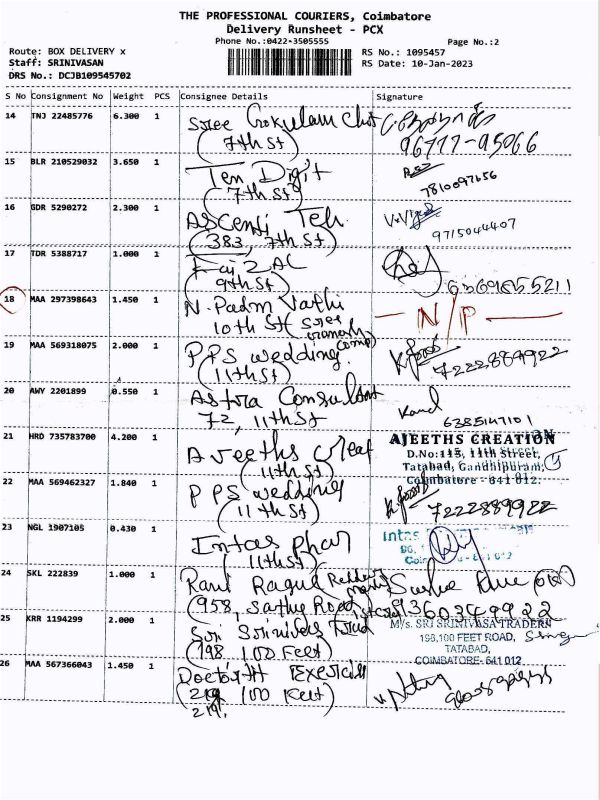 THE PROFESSIONAL COURIERS, Coimbatore
Delivery Runsheet - PCX
Phone No.:0422-3505555
Page No.:2
Route: BOX DELIVERY x
RS No.: 1095457
Staff: SRINIVASAN
RS Date: 10-Jan-2023
DRS No.: DCJB109545702
S No Consignment No Weight PCS Consignee Details Signature
14 TNJ 22485776 6.300 1 Sree Gokulam Chit
(7th St) 96777-95066
15 BLR 210529032 3.650 1 Ten Digit
(7th St) 7810097656
16 GDR 5290272 2.300 1 Ascent Teh
(383, 7th St) 9715044407
17 TDR 5388717 1.000 1
(9th St) 6369855211
18 MAA 297398643 1.450 1 N. Padm Vathi
10th St Sree N/P
19 MAA 569318075 2.000 1 PPS wedding
(11th St) 7222889922
20 AWY 2201899 0.550 1 Astra Consultant
72, 11th St 6385147101
21 HRD 735783700 4.200 1 Ajeeths Creat
(11th St)
AJEETHS CREATION
D.No:115, 11th Street,
Tatabad, Gandhipuram,
Coimbatore - 641 012.
22 MAA 569462327 1.840 1 PPS wedding
(11th St) 7222889922
23 NGL 1907105 0.430 1 Intas phar
(11th St)
Intas
24 SKL 222839 1.000 1
(958, Sathy Road 9360349922
25 KRR 1194299 2.000 1 Sri Srinivas Trad
(198 100 Feet)
M/s. SRI SRINIVASA TRADERS
198,100 FEET ROAD,
TATABAD,
COIMBATORE-641 012
26 MAA 567366043 1.450 1
100 Feet)
219.